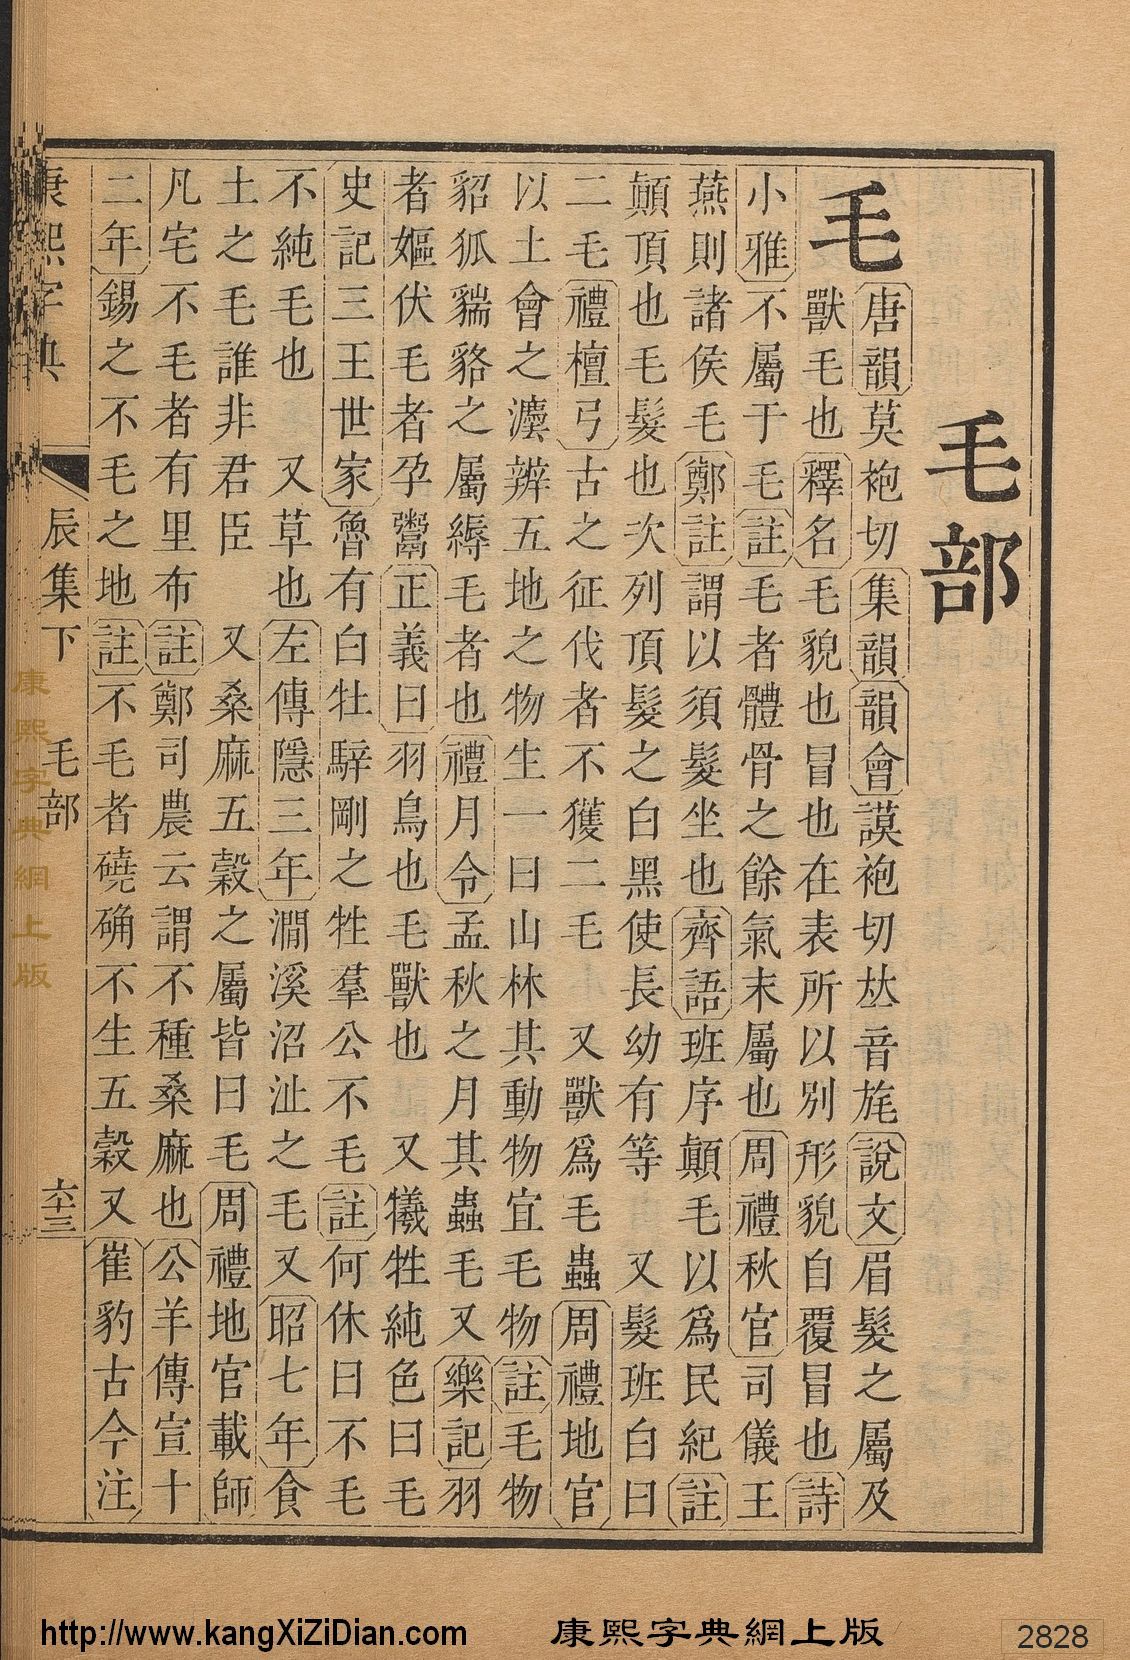 毛部
毛
唐韻莫袍切集韻韻會謨袍切𠀤音旄說文眉髮之屬及
獸毛也釋名毛貌也冒也在表所以別形貌自覆冒也詩
小雅不屬于毛註毛者體骨之餘氣末屬也周禮秋官司儀王
燕則諸侯毛鄭註謂以須髮坐也齊語班序顛毛以爲民紀註
顛頂也毛髮也次列頂髮之白黑使長幼有等 又髮班白曰
二毛禮檀弓古之征伐者不獲二毛 又獸爲毛蟲周禮地官
以土會之灋辨五地之物生一曰山林其動物宜毛物註毛物
貂狐貒貉之屬縟毛者也禮月令孟秋之月其蟲毛又樂記羽
者嫗伏毛者孕鬻正義曰羽鳥也毛獸也 又犧牲純色曰毛
史記三王世家魯有白牡騂剛之牲羣公不毛註何休曰不毛
不純毛也 又草也左傳隱三年澗溪沼沚之毛又昭七年食
土之毛誰非君臣 又桑麻五穀之屬皆曰毛周禮地官載師
凡宅不毛者有里布註鄭司農云謂不種桑麻也公羊傳宣十
二年錫之不毛之地註不毛者磽确不生五穀又崔豹古今注
康熙字典 辰集下 毛部 六十三
康熙字典網上版
http://www.kangXiZiDian.com 康熙字典網上版 2828